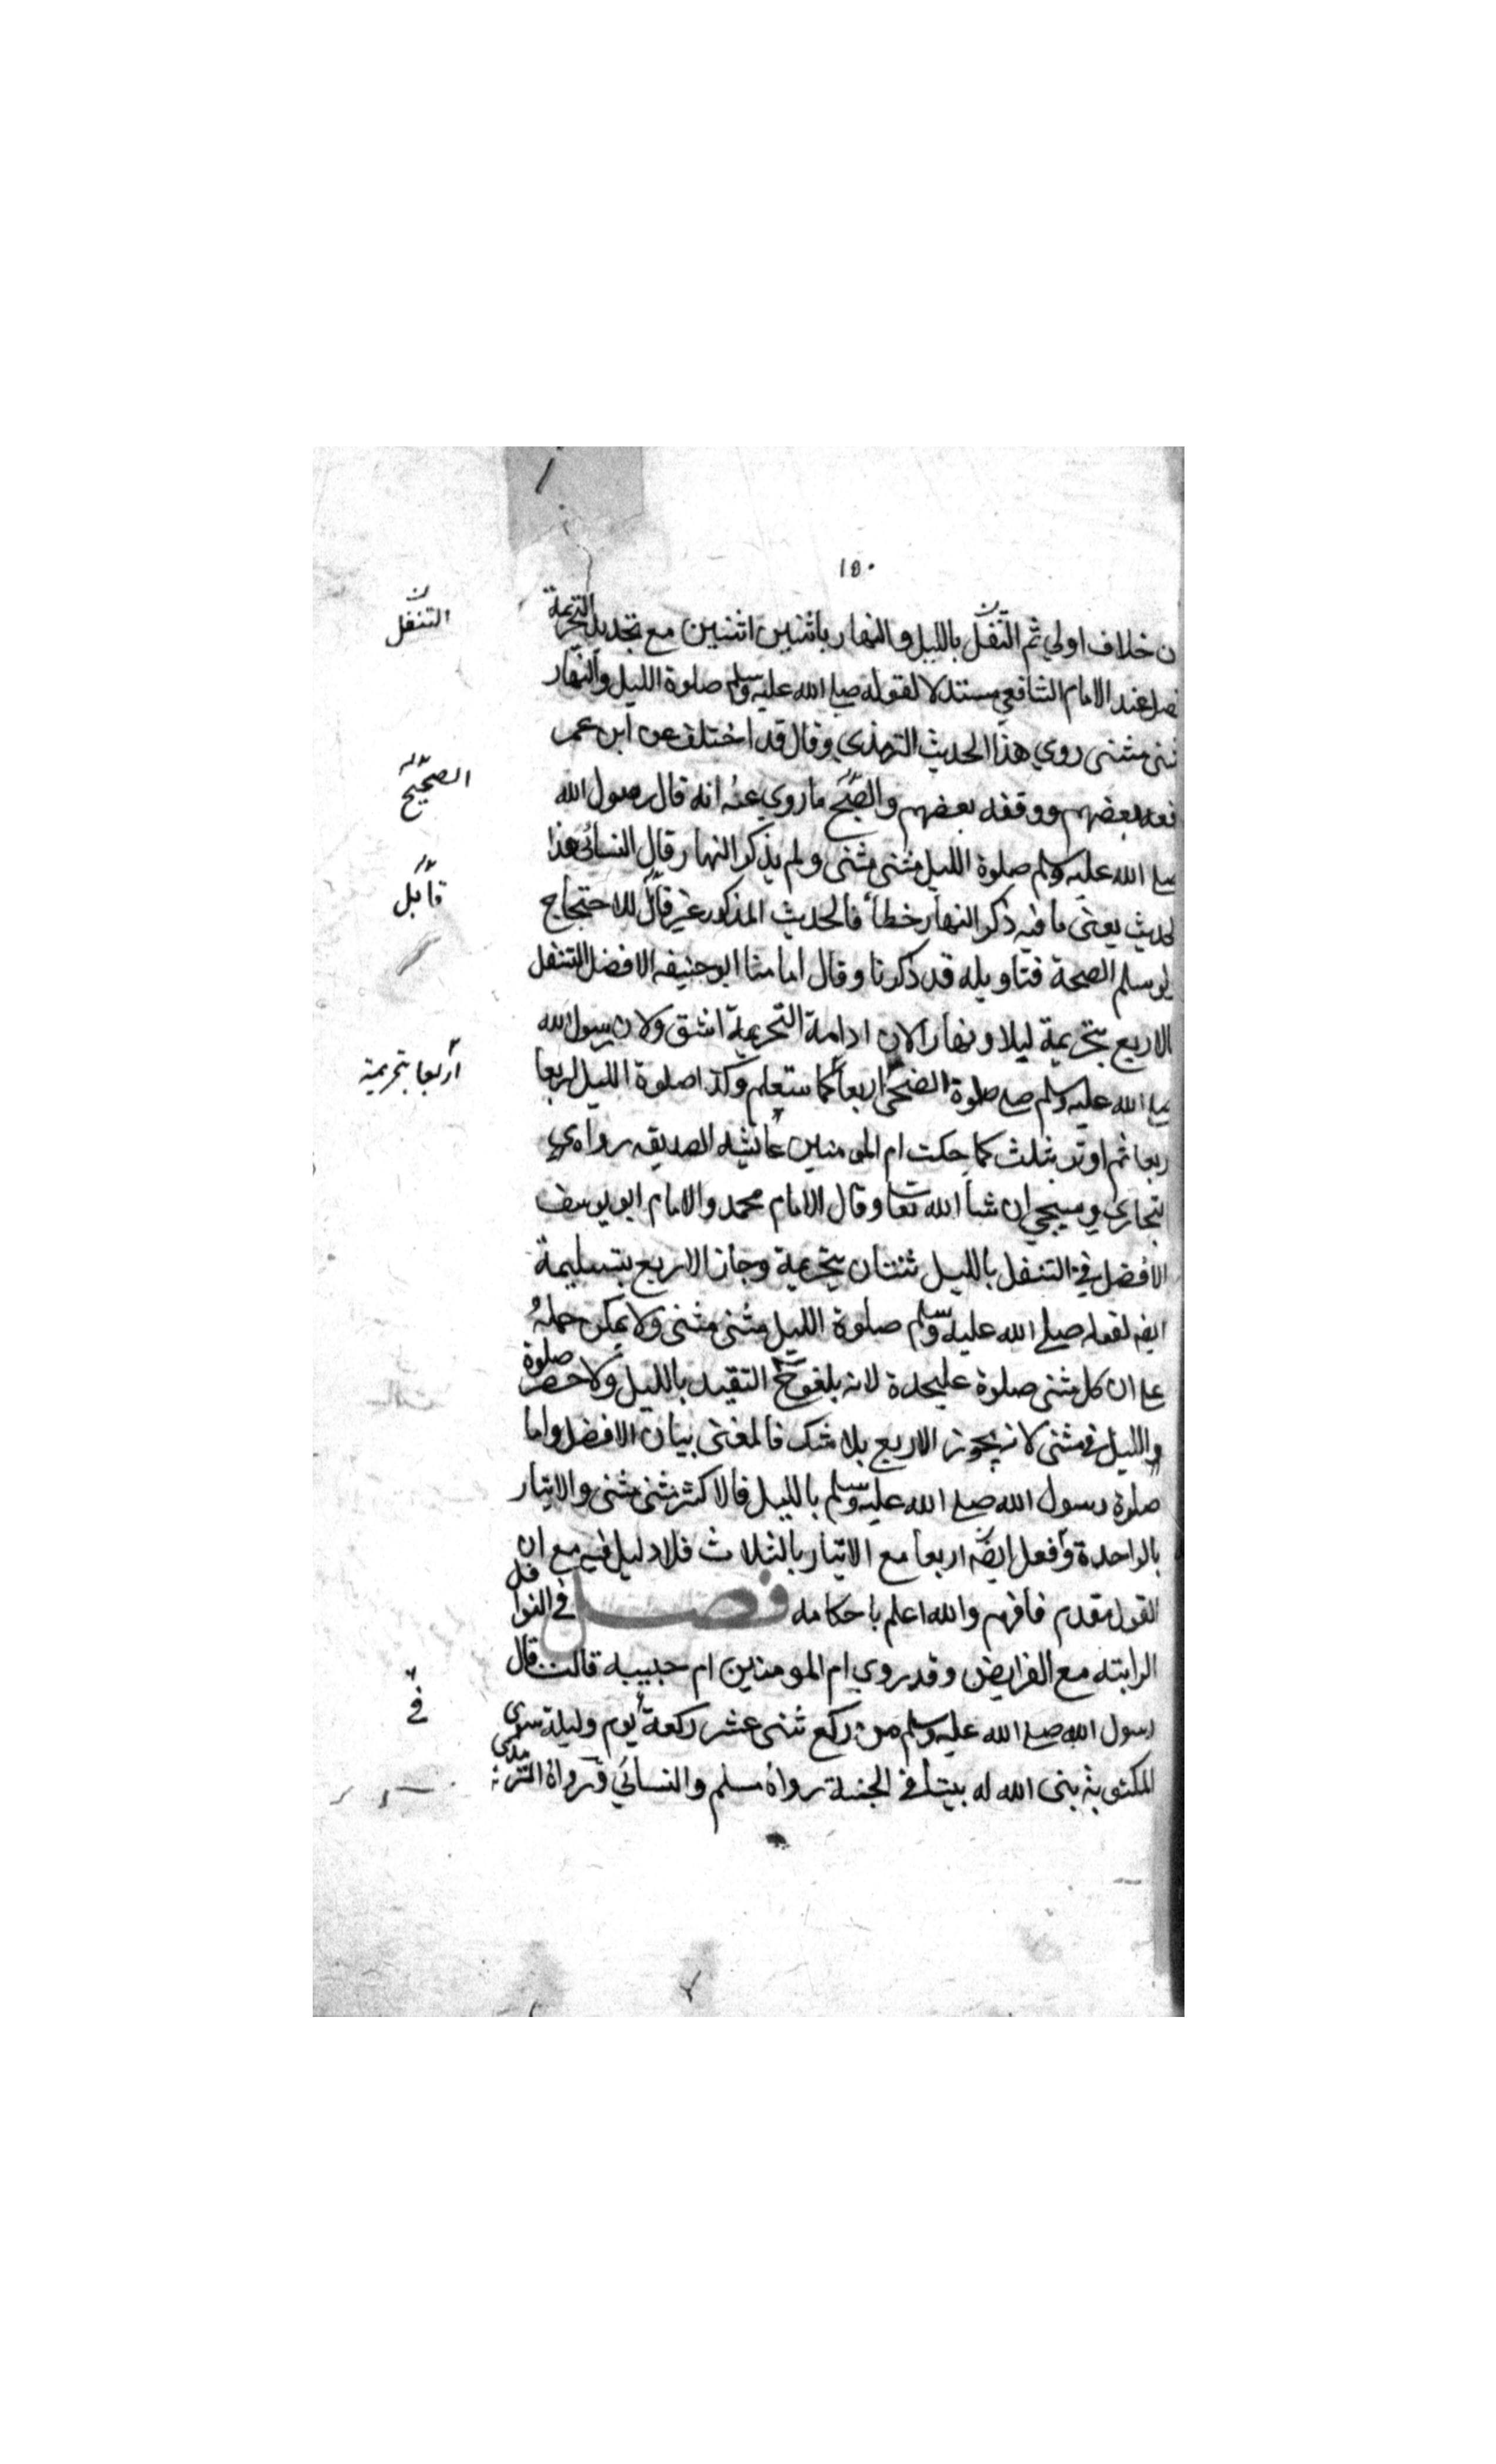 ١٥٠
ن خلاف اولي ثم التنفل بالليل والنهار باثنين اثنين مع تجديد التحريمة
التنفل
ضل عند الامام الشافعي مستدلا لقوله صلي الله عليه وسلم صلوة الليل والنهار
ثنى مثنى روي هذا الحديث الترمذي وقال قد اختلف عن ابن عمر
فعه بعضهم ووقفه بعضهم والصحيح ما روي عنه انه قال رسول الله
الصحيح
صلي الله عليه وسلم صلوة الليل مثنى مثنى ولم يذكر النهار وقال النسائي هذا
لحديث يعني ما فيه ذكر النهار خطأ فالحديث المذكور غير قابل للاحتجاج
قابل
لو سلم الصحة فتاويله قد ذكرنا وقال امامنا ابو حنيفه الافضل التنفل
الاربع بتحريمة ليلا ونهارا لان ادامة التحريمة اشق ولان رسول الله
أربعا بتحريمة
صلي الله عليه وسلم صلي صلوة الضحى اربعا كما ستعلم وكذا صلوة الليل اربعا
ربعا ثم اوتر بثلث كما حكت ام المومنين عائشه الصديقه رواه ي
بخاري وسيجي ان شاء الله تعا وقال الامام محمد والامام ابو يوسف
الافضل في التنفل بالليل ثنتان بتحريمة وجاز الاربع بتسليمة
ايضا لقوله صلي الله عليه وسلم صلوة الليل مثنى مثنى ولا يمكن حمله
علي ان كل مثنى صلوة عليحدة لانه يلغو ح التقيد بالليل ولا حصر صلوة
والليل في مثنى لانه يجوز الاربع بلا شك فالمعنى بيان الافضل واما
صلوة رسول الله صلي الله عليه وسلم بالليل فالاكثر مثنى مثنى والايتار
بالواحدة وفعل ايضا اربعا مع الايتار بالثلاث فلا دليل فيه مع ان
القول مقدم فافهم والله اعلم باحكامه فصل في النوافل
الراتبه مع الفرايض وقد روي ام المومنين ام حبيبه قالت قال
رسول الله صلي الله عليه وسلم من ركع ثنى عشر ركعة يوم وليلة سوى
في
المكتوبة بنى الله له بيتا في الجنة رواه مسلم والنسائي ورواه الترمذي